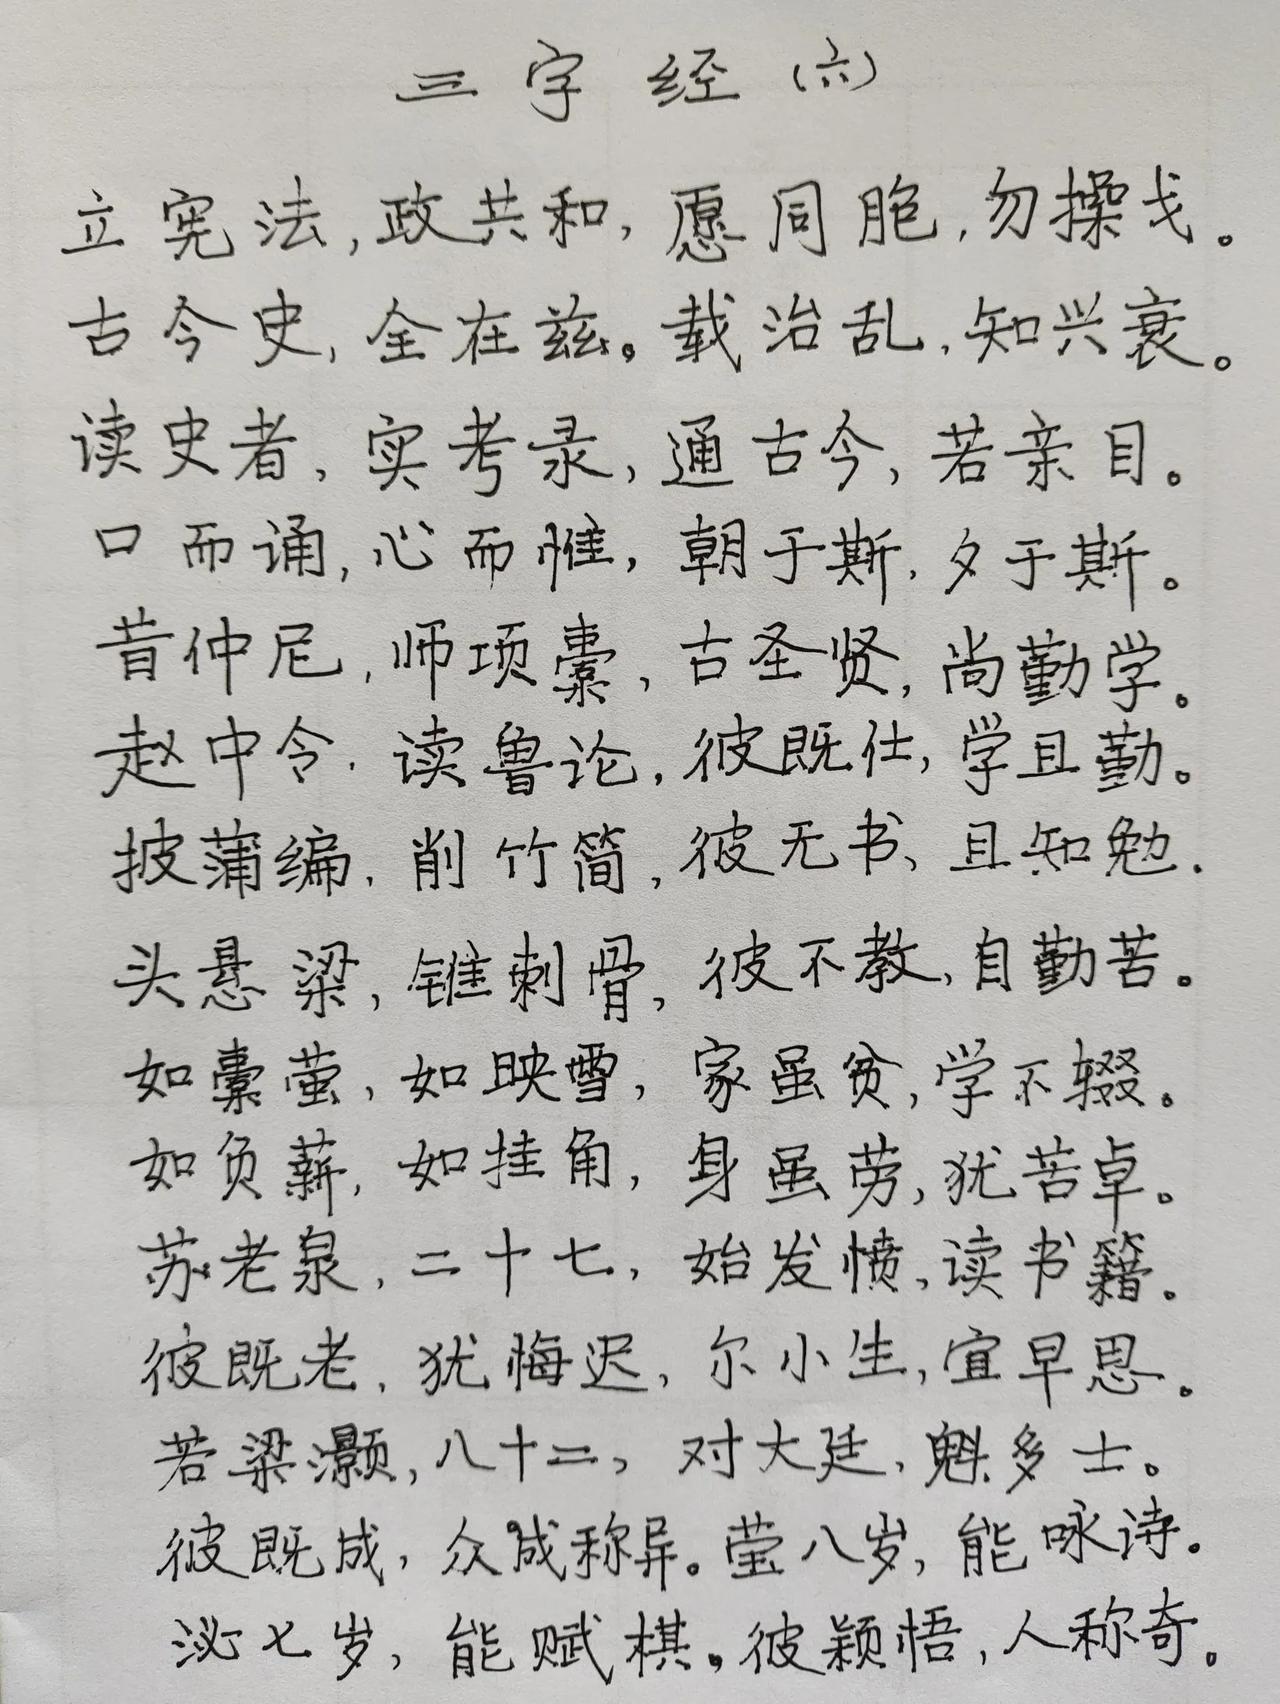 三字经(六)
立宪法,政共和,愿同胞,勿操戈。
古今史,全在兹。载治乱,知兴衰。
读史者,实考录,通古今,若亲目。
口而诵,心而惟,朝于斯,夕于斯。
昔仲尼,师项橐,古圣贤,尚勤学。
赵中令.读鲁论,彼既仕,学且勤。
披蒲编,削竹简,彼无书、且知勉.
头悬梁,锥刺骨,彼不教,自勤苦。
如囊萤,如映雪,家虽贫,学不辍。
如负薪,如挂角,身虽劳,犹苦卓。
苏老泉,二十七,始发愤,读书籍。
彼既老,犹悔迟,尔小生,宜早思。
若梁灏,八十二,对大廷,魁多士。
彼既成,众成称异。莹八岁,能咏诗。
泌七岁,能赋棋。彼颖悟,人称奇。